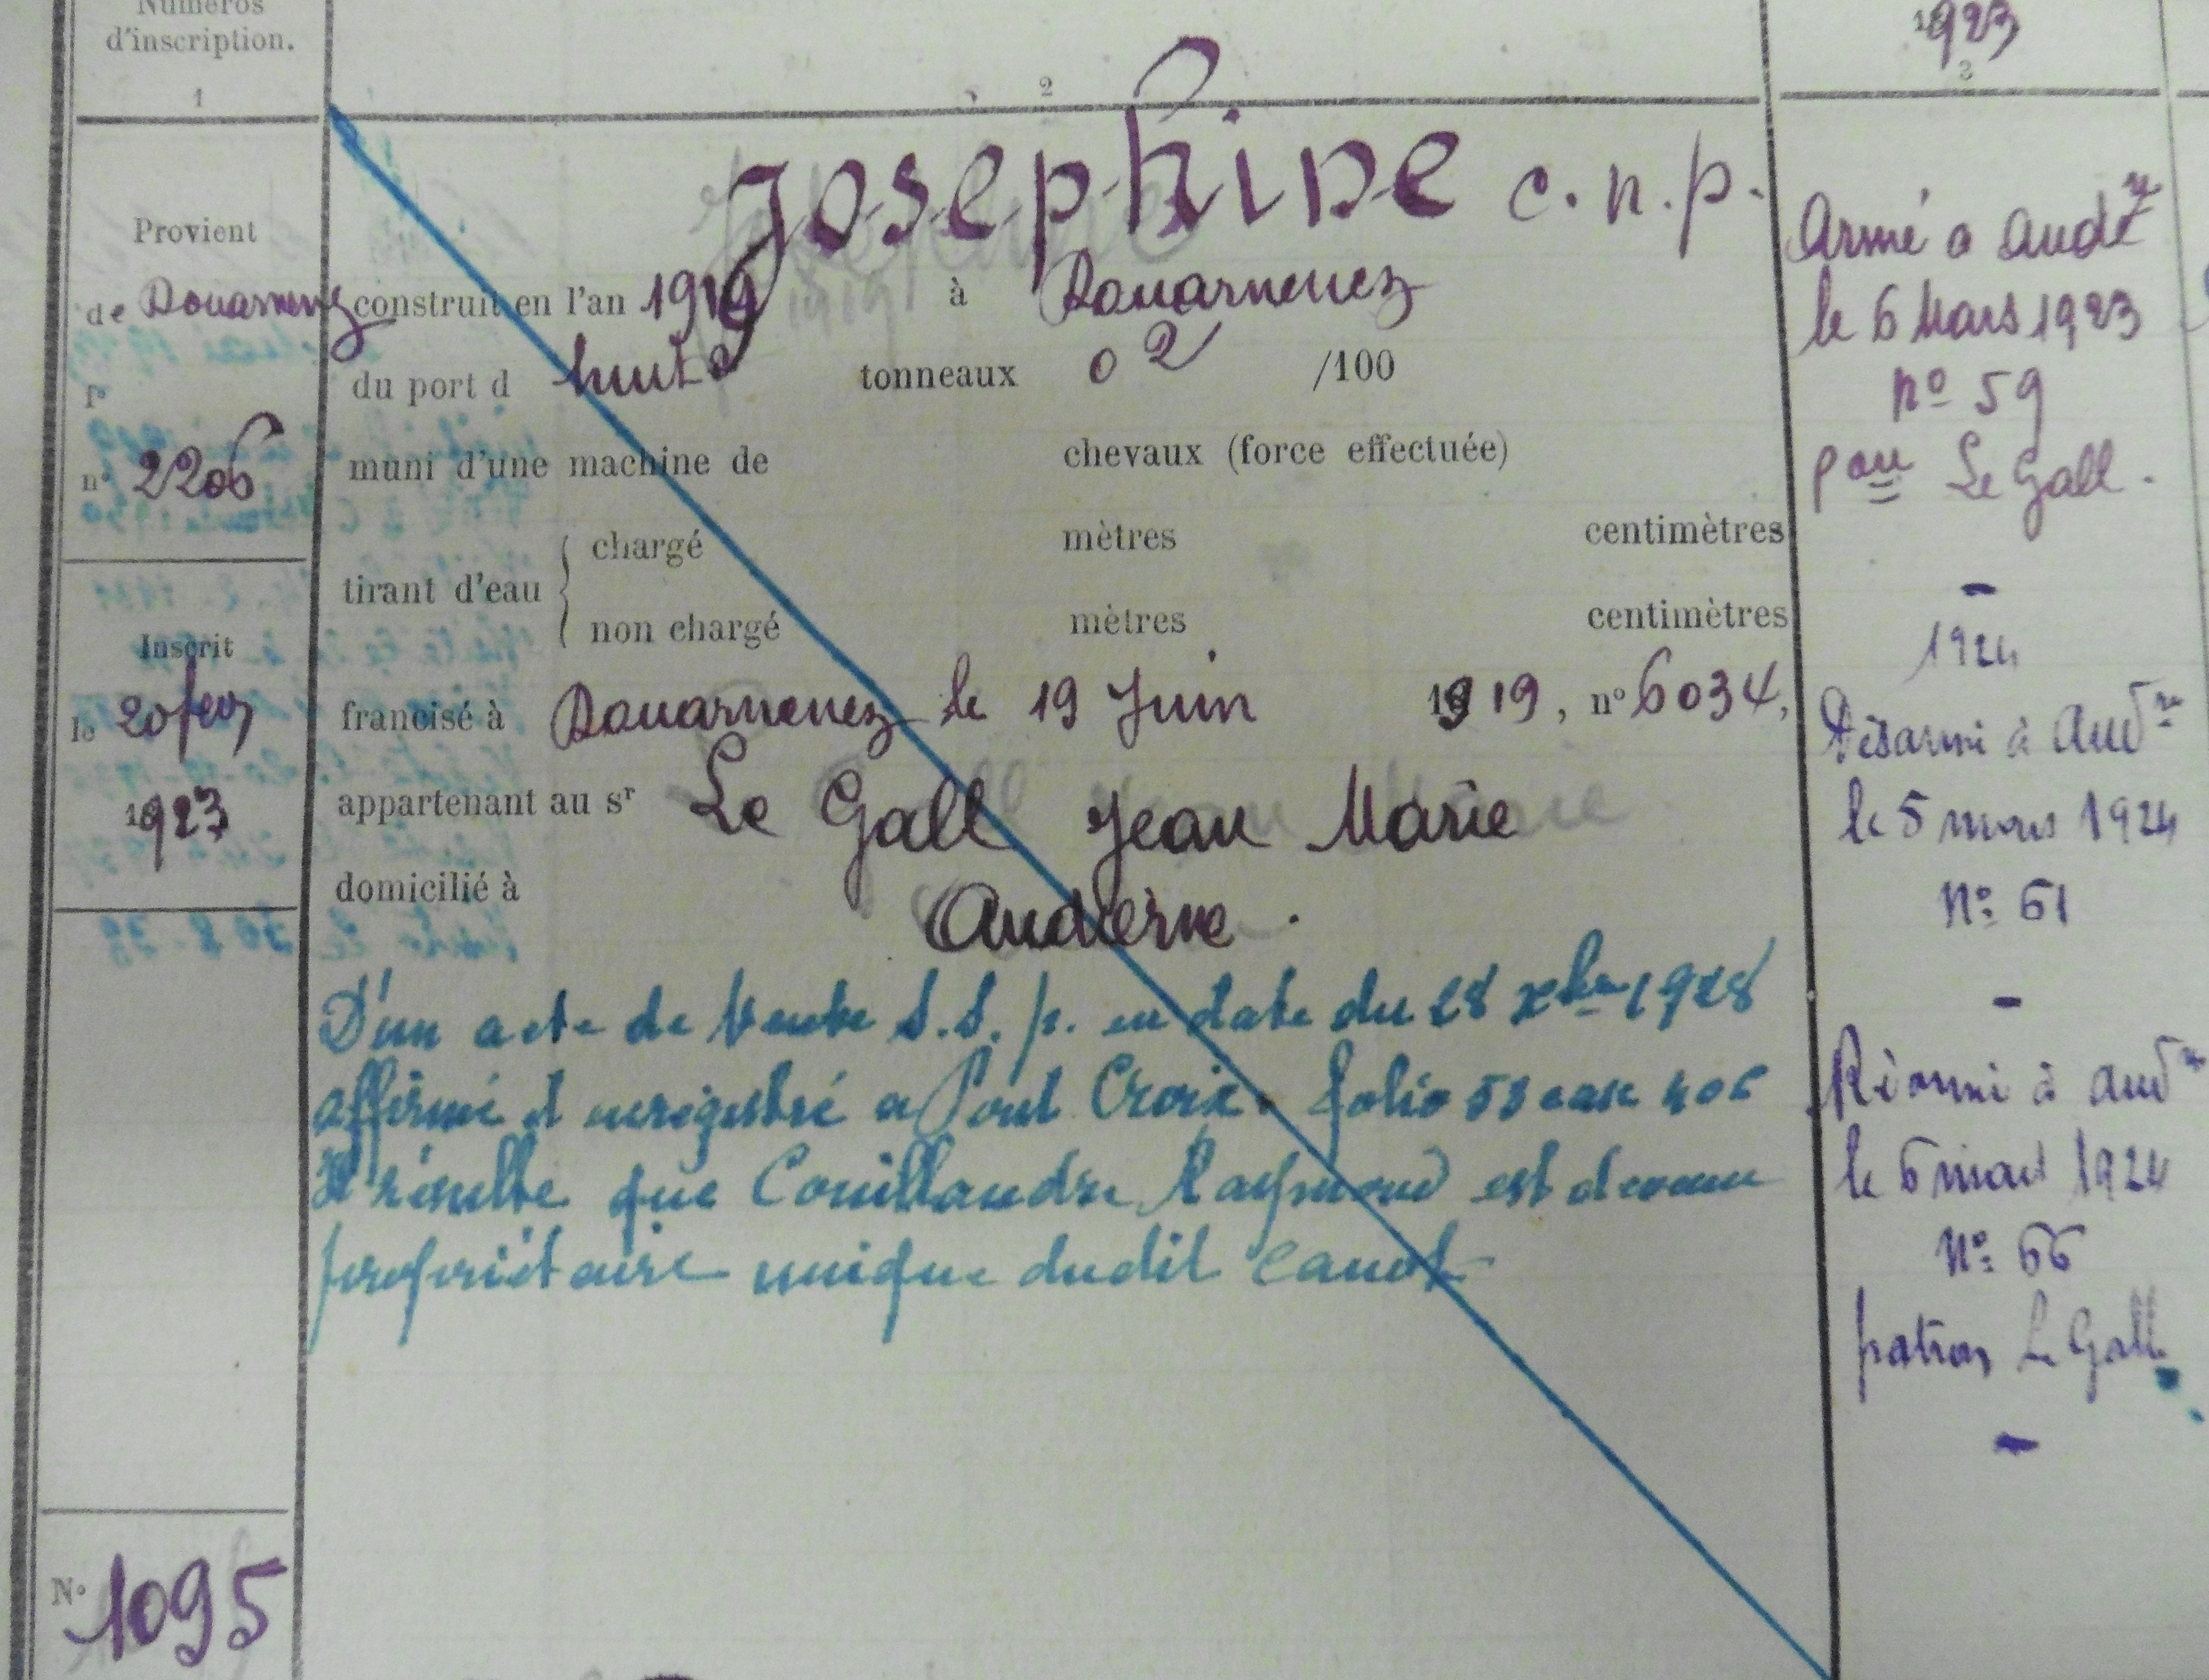 Numéros
d'inscription.
1
Provient
de Douarnenez
f°
n° 2206
Inscrit
le 20 fev
1923
N° 1095
2
Josephine c.n.p.
construit en l'an 1919 à Douarnenez
du port d huit tonneaux 02 /100
muni d'une machine de chevaux (force effectuée)
tirant d'eau { chargé mètres centimètres
non chargé mètres centimètres
francisé à Douarnenez le 19 Juin 1919, n° 6034,
appartenant au sr Le Gall Jean Marie
domicilié à Audierne.
D'un acte de Vente S.S.p. en date du 28 xbre 1928
affirmé et enregistré a Pont Croix. folio 53 case
Il résulte que Couillandre Raymond est devenu
propriétaire unique dudit canot
1923
3
Armé a Aud
le 6 Mars 1923
n° 59
pon Le Gall.
1924
Désarmé à Aud
le 5 mars 1924
N° 61
Réarmé à Aud
le 6 mars 1924
N° 66
patron Le Gall